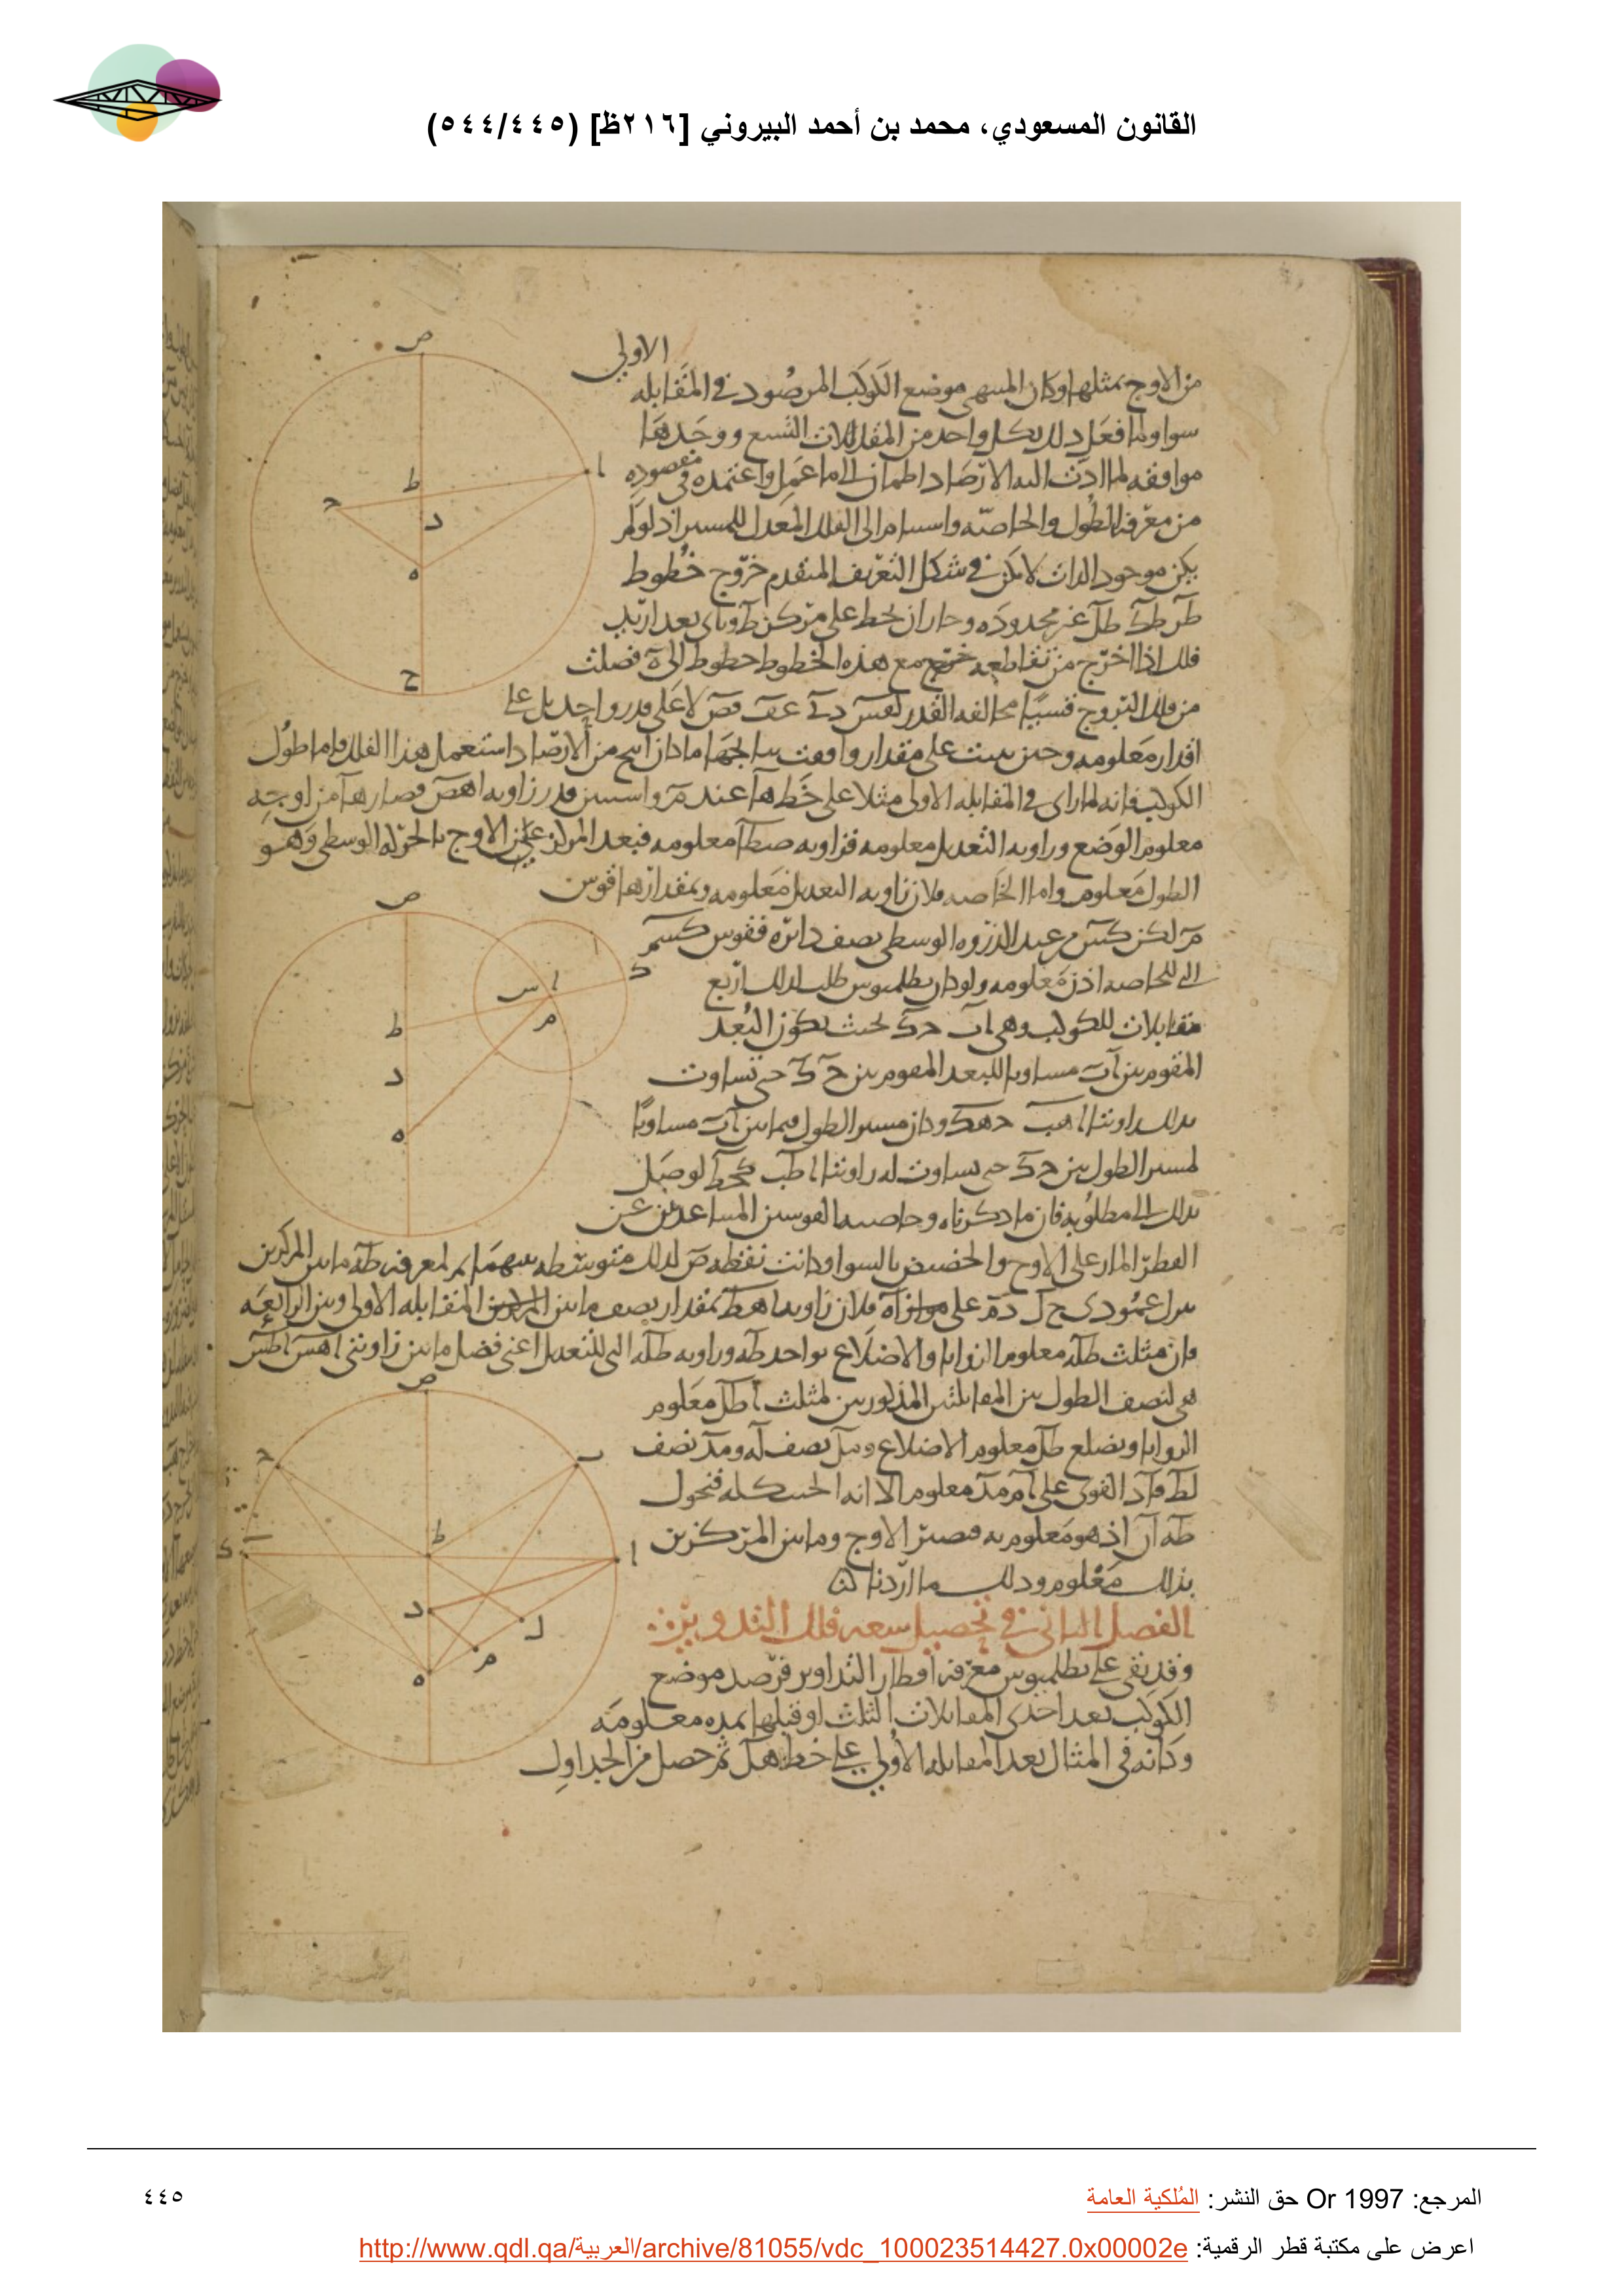 القانون المسعودي، محمد بن أحمد البيروني [٢١٦ظ] (٥٤٤/٤٤٥)
الاولى
من الاوج بمثلها وكان المنتهى موضع الكوكب المرصود في المقابله
سوا ولما فعل ذلك بكل واحد من المقابلات التسع ووجدها
موافقه لما ادت اليه الارصاد اطمان الى ما عمل واعتمده في مقصوده
من معرفه الطول والخاصه
يكن موجود الذات لامكن في شكل التعريف المتقدم خروج خطوط
غير محدوده وجاز ان يخط على مركز ط وباى بعد اريد
فلك اذا اخرج من تقاطعه مع هذه الخطوط خطوط الى ه فصلت
من فلك البروج قسيا مخالفه القدر
اقدار معلومه وحين بنيت على مقدار وافقت نتايجها ما كان انتج من الارصاد استعمل هذا الفلك فاما طول
الكوكب فانه لما راى في المقابله الاولى مثلا على خط ها عند م واستبين قدر زاويه اهص فصار ها من اوجه
معلوم الوضع وزاويه التعديل معلومه فزاويه صطا معلومه فبعد المركز عن الاوج بالحركه الوسطى وهو
الطول معلوم واما الخاصه فلان زاويه التعديل معلومه وبمقدارها قوس
م لكن كس عند الذروه الوسطى نصف دايره فقوس كسم
التى للخاصه اذن معلومه ولو كان بطلميوس طلب لذلك اربع
مقابلات للكوكب وهى اب حك بحيث يكون البعد
المقوم بين اب مساويا للبعد المقوم بين حك حتى تساوت
بذلك زاويتا اهب حهك وكان مسير الطول فيما بين اب مساويا
لمسير الطول بين حك حتى تساوت له زاويتا اطب كطح لوصل
بذلك الى مطلوبه فان ما ذكرناه وخاصه القوسين المتباعدتين عن
القطر المار على الاوج والحضيض بالسوا وكانت نقطه ص لذلك متوسطه بينهما ثم لمعرفه طه ما بين المركزين
المقابله الاولى وبين الرابعه
فان مثلث طله معلوم الزوايا والاضلاع بواحد طه وزاويه طله التى للتعديل اعنى فضل ما بين زاويتى
هى لنصف الطول بين المقابلتين المذكورتين لمثلث اطل معلوم
الزوايا وبضلع طل معلوم الاضلاع ومل نصف له ومد نصف
لط فاد القوى على ام مد معلوم الا انه الجيب كله فنحول
طه اذ هو معلوم به فيصير الاوج وما بين المركزين
بذلك معلوم وذلك ما اردناه
الفصل الثانى في تحصيل سعه فلك التدوير
وقد بقى على بطلميوس معرفه اقطار التداوير فرصد موضع
الكوكب بعد احدى المقابلات الثلث او قبلها بمده معلومه
وكانه في المثال بعد المقابله الاولى على خط هل ثم حصل من الجداول
ص
ا
ط
ح
د
ه
ج
ص
ك
ا
س
م
ط
د
ه
ص
ب
ح
ط
ا
ك
د
ل
م
ه
المرجع: Or 1997 حق النشر: المُلكية العامة
٤٤٥
اعرض على مكتبة قطر الرقمية: http://www.qdl.qa/العربية/archive/81055/vdc_100023514427.0x00002e